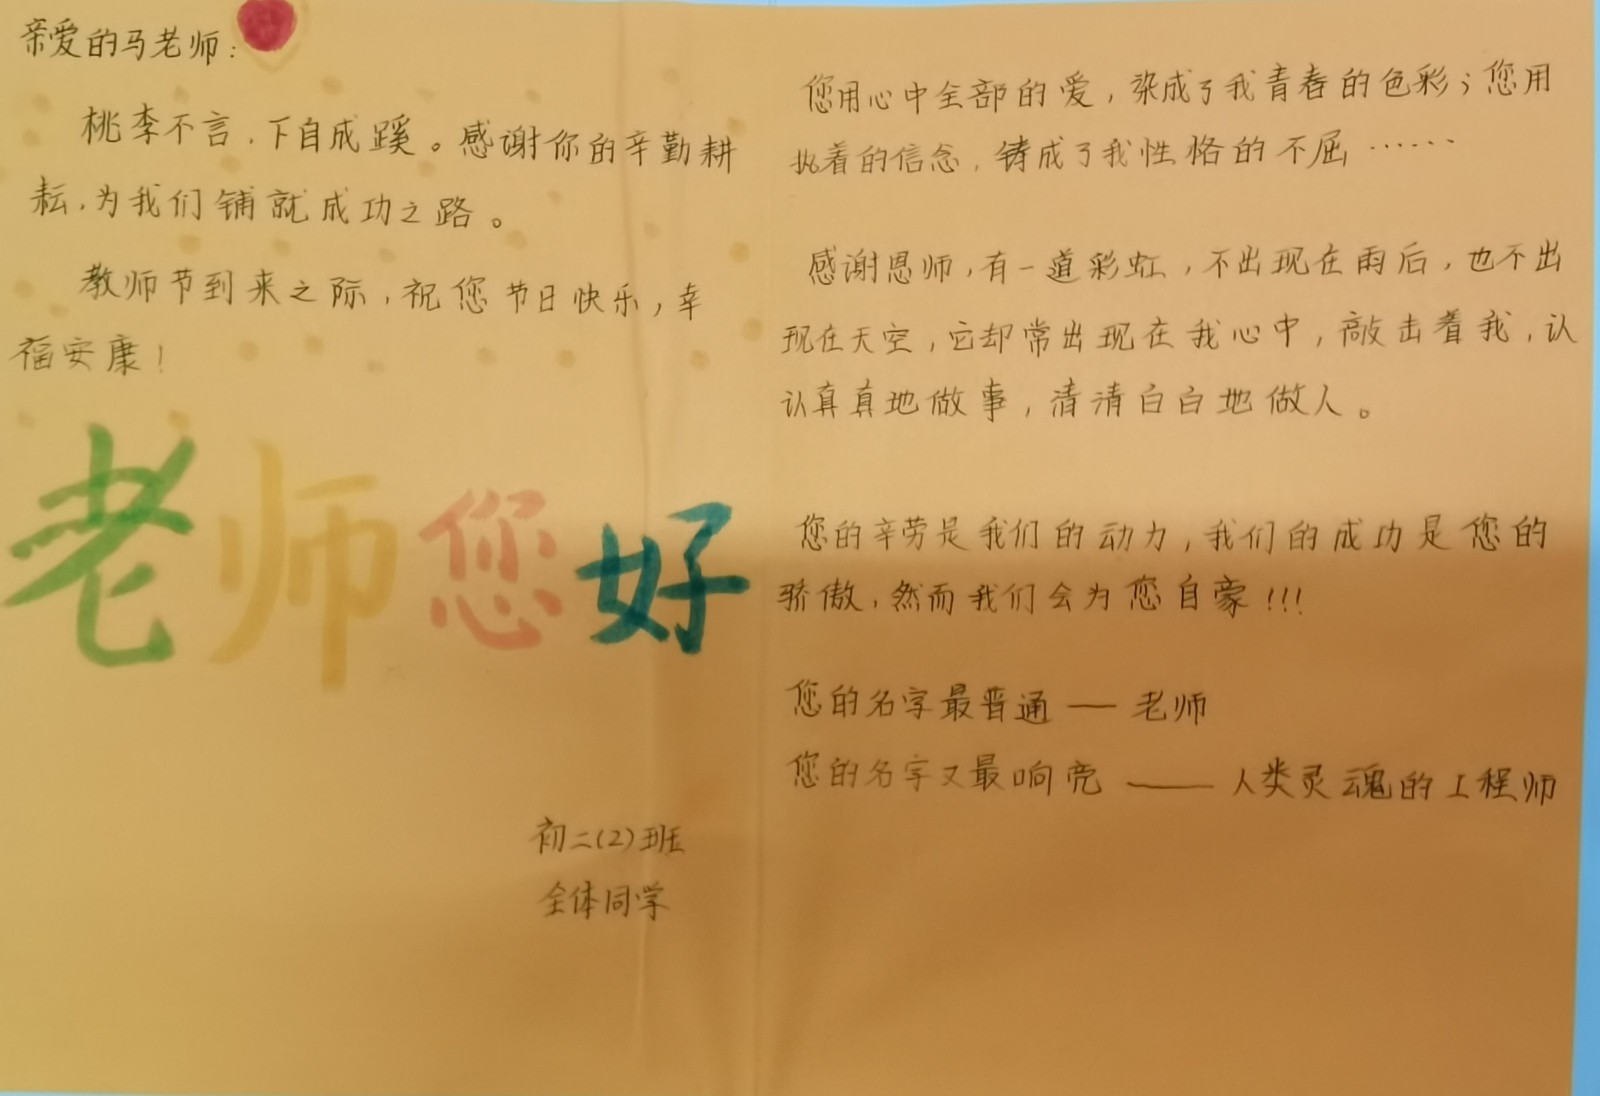 亲爱的马老师：
桃李不言，下自成蹊。感谢你的辛勤耕
耘，为我们铺就成功之路。
教师节到来之际，祝您节日快乐，幸
福安康！
老师您好
初二（2）班
全体同学
您用心中全部的爱，染成了我青春的色彩；您用
执着的信念，铸成了我性格的不屈……
感谢恩师，有一道彩虹，不出现在雨后，也不出
现在天空，它却常出现在我心中，敲击着我，认
认真真地做事，清清白白地做人。
您的辛劳是我们的动力，我们的成功是您的
骄傲，然而我们会为您自豪！！！
您的名字最普通——老师
您的名字又最响亮——人类灵魂的工程师